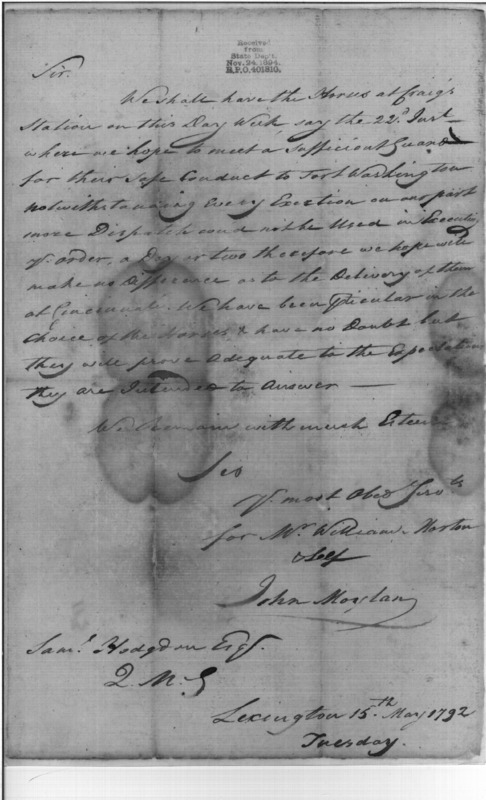 Received
from
State Dep't.
Nov. 24, 1894.
R.P.O. 401810.
Sir.
We shall have the Horses at Craig's
Station on this Day Week say the 22d. Inst
where we hope to meet a Sufficient Guard
for their Safe Conduct to Fort Washington
notwithstanding Every Exertion on our part
more Dispatch could not be Used in Executing
Yr. order, a Day or two therefore we hope will
make no Difference as to the Delivery of them
at Cincinnati. We have been Particular in the
Choice of the Horses & have no Doubt but
they will prove adequate to the Expectation
they are Intended to Answer —
We Remain with much Esteem
Yr. most Obedt Servts
for Mr. William Morton
& Self
John
Saml. Hodgdon Esqr.
Q. M. G
Lexington 15th May 1792
Tuesday.